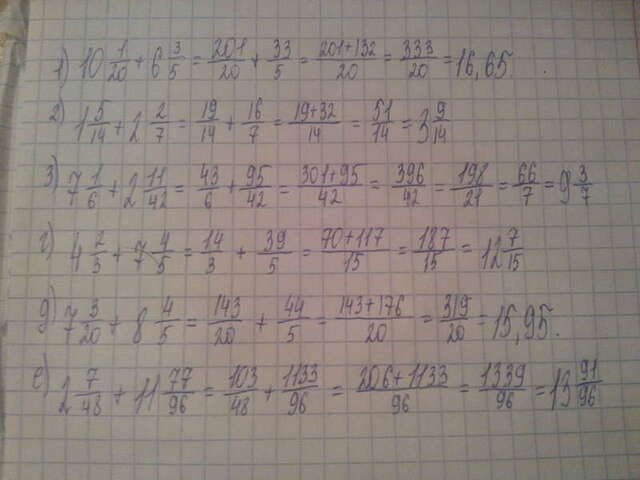 1) 10 1/20 + 6 3/5 = 201/20 + 33/5 = (201+132)/20 = 333/20 = 16,65.
2) 1 5/14 + 2 2/7 = 19/14 + 16/7 = (19+32)/14 = 51/14 = 3 9/14
3) 7 1/6 + 2 11/42 = 43/6 + 95/42 = (301+95)/42 = 396/42 = 198/21 = 66/7 = 9 3/7
г) 4 2/3 + 7 4/5 = 14/3 + 39/5 = (70+117)/15 = 187/15 = 12 7/15
д) 7 3/20 + 8 4/5 = 143/20 + 44/5 = (143+176)/20 = 319/20 = 15,95.
е) 2 7/48 + 11 77/96 = 103/48 + 1133/96 = (206+1133)/96 = 1339/96 = 13 91/96